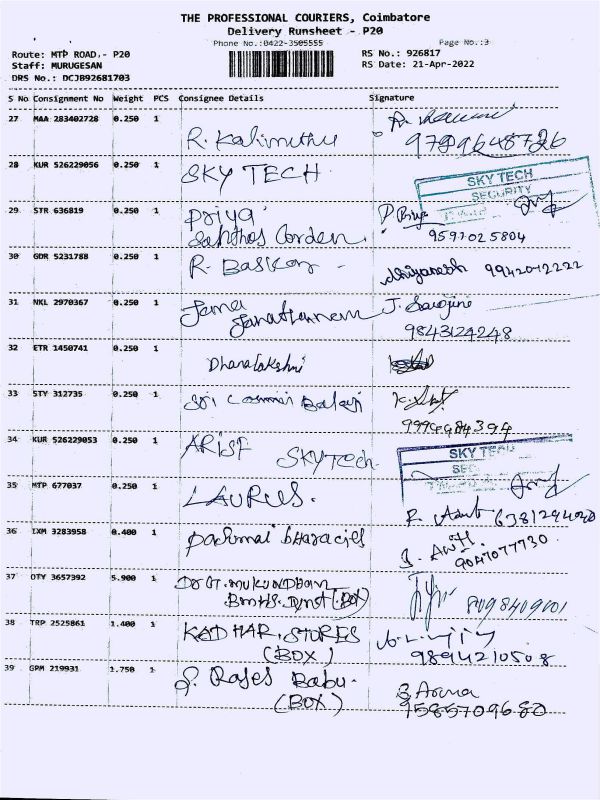 THE PROFESSIONAL COURIERS, Coimbatore
Delivery Runsheet - P20
Phone No.:0422-3505555 Page No.:3
Route: MTP ROAD.- P20 RS No.: 926817
Staff: MURUGESAN RS Date: 21-Apr-2022
DRS No.: DCJB92681703
S No Consignment No Weight PCS Consignee Details Signature
27 MAA 283402728 0.250 1
R. Kalimuthu
28 KUR 526229056 0.250 1
SKY TECH
SKY TECH
SECURITY
29 STR 636819 0.250 1
priya P. Priya
Santhos Gorden 9597025804
30 GDR 5231788 0.250 1
R. Baskar 9942012222
31 NKL 2970367 0.250 1
Jama J. Sarojini
9843124248
32 ETR 1450741 0.250 1
Dhanalakshmi
33 STY 312735 0.250 1
Sri Balaji
9994984394
34 KUR 526229053 0.250 1
ARIST SKYTech
SKY TECH
35 MTP 677037 0.250 1
LAURUS.
36 IXM 3283958 0.400 1
9047077730
37 OTY 3657392 5.900 1
Dr G.T. MUKUNDHAN
(BOX) 8098409001
38 TRP 2525861 1.400 1
KADHAR. STORES
(BOX) 9894210508
39 GPM 219931 1.750 1
S. Rajes Babu.
(BOX) 9585709680